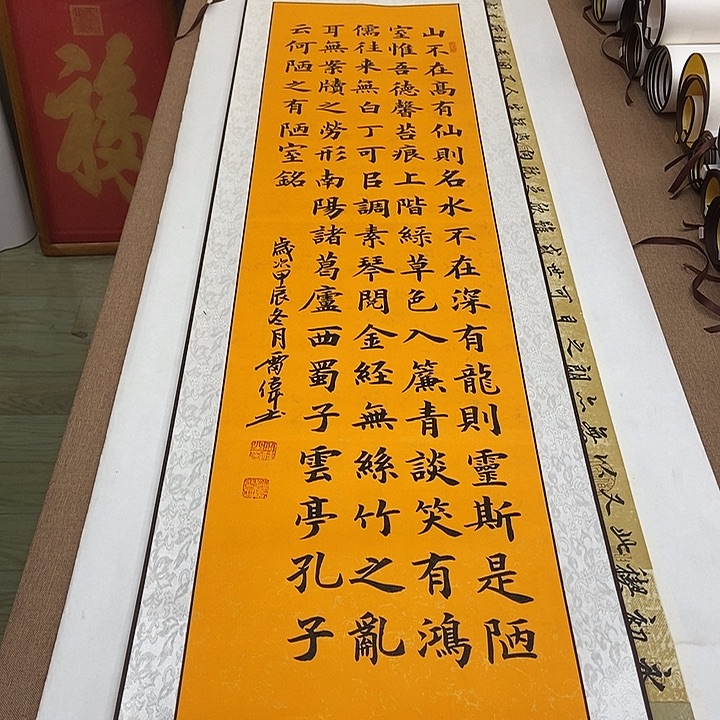 山不在高有仙則名水不在深有龍則靈斯是陋
室惟吾德馨苔痕上階綠草色入簾青談笑有鴻
儒往来無白丁可㠯調素琴閱金經無絲竹之亂
耳無案牘之勞形南陽諸葛廬西蜀子雲亭孔子
云何陋之有陋室銘
歲次甲辰冬月雷偉书
福